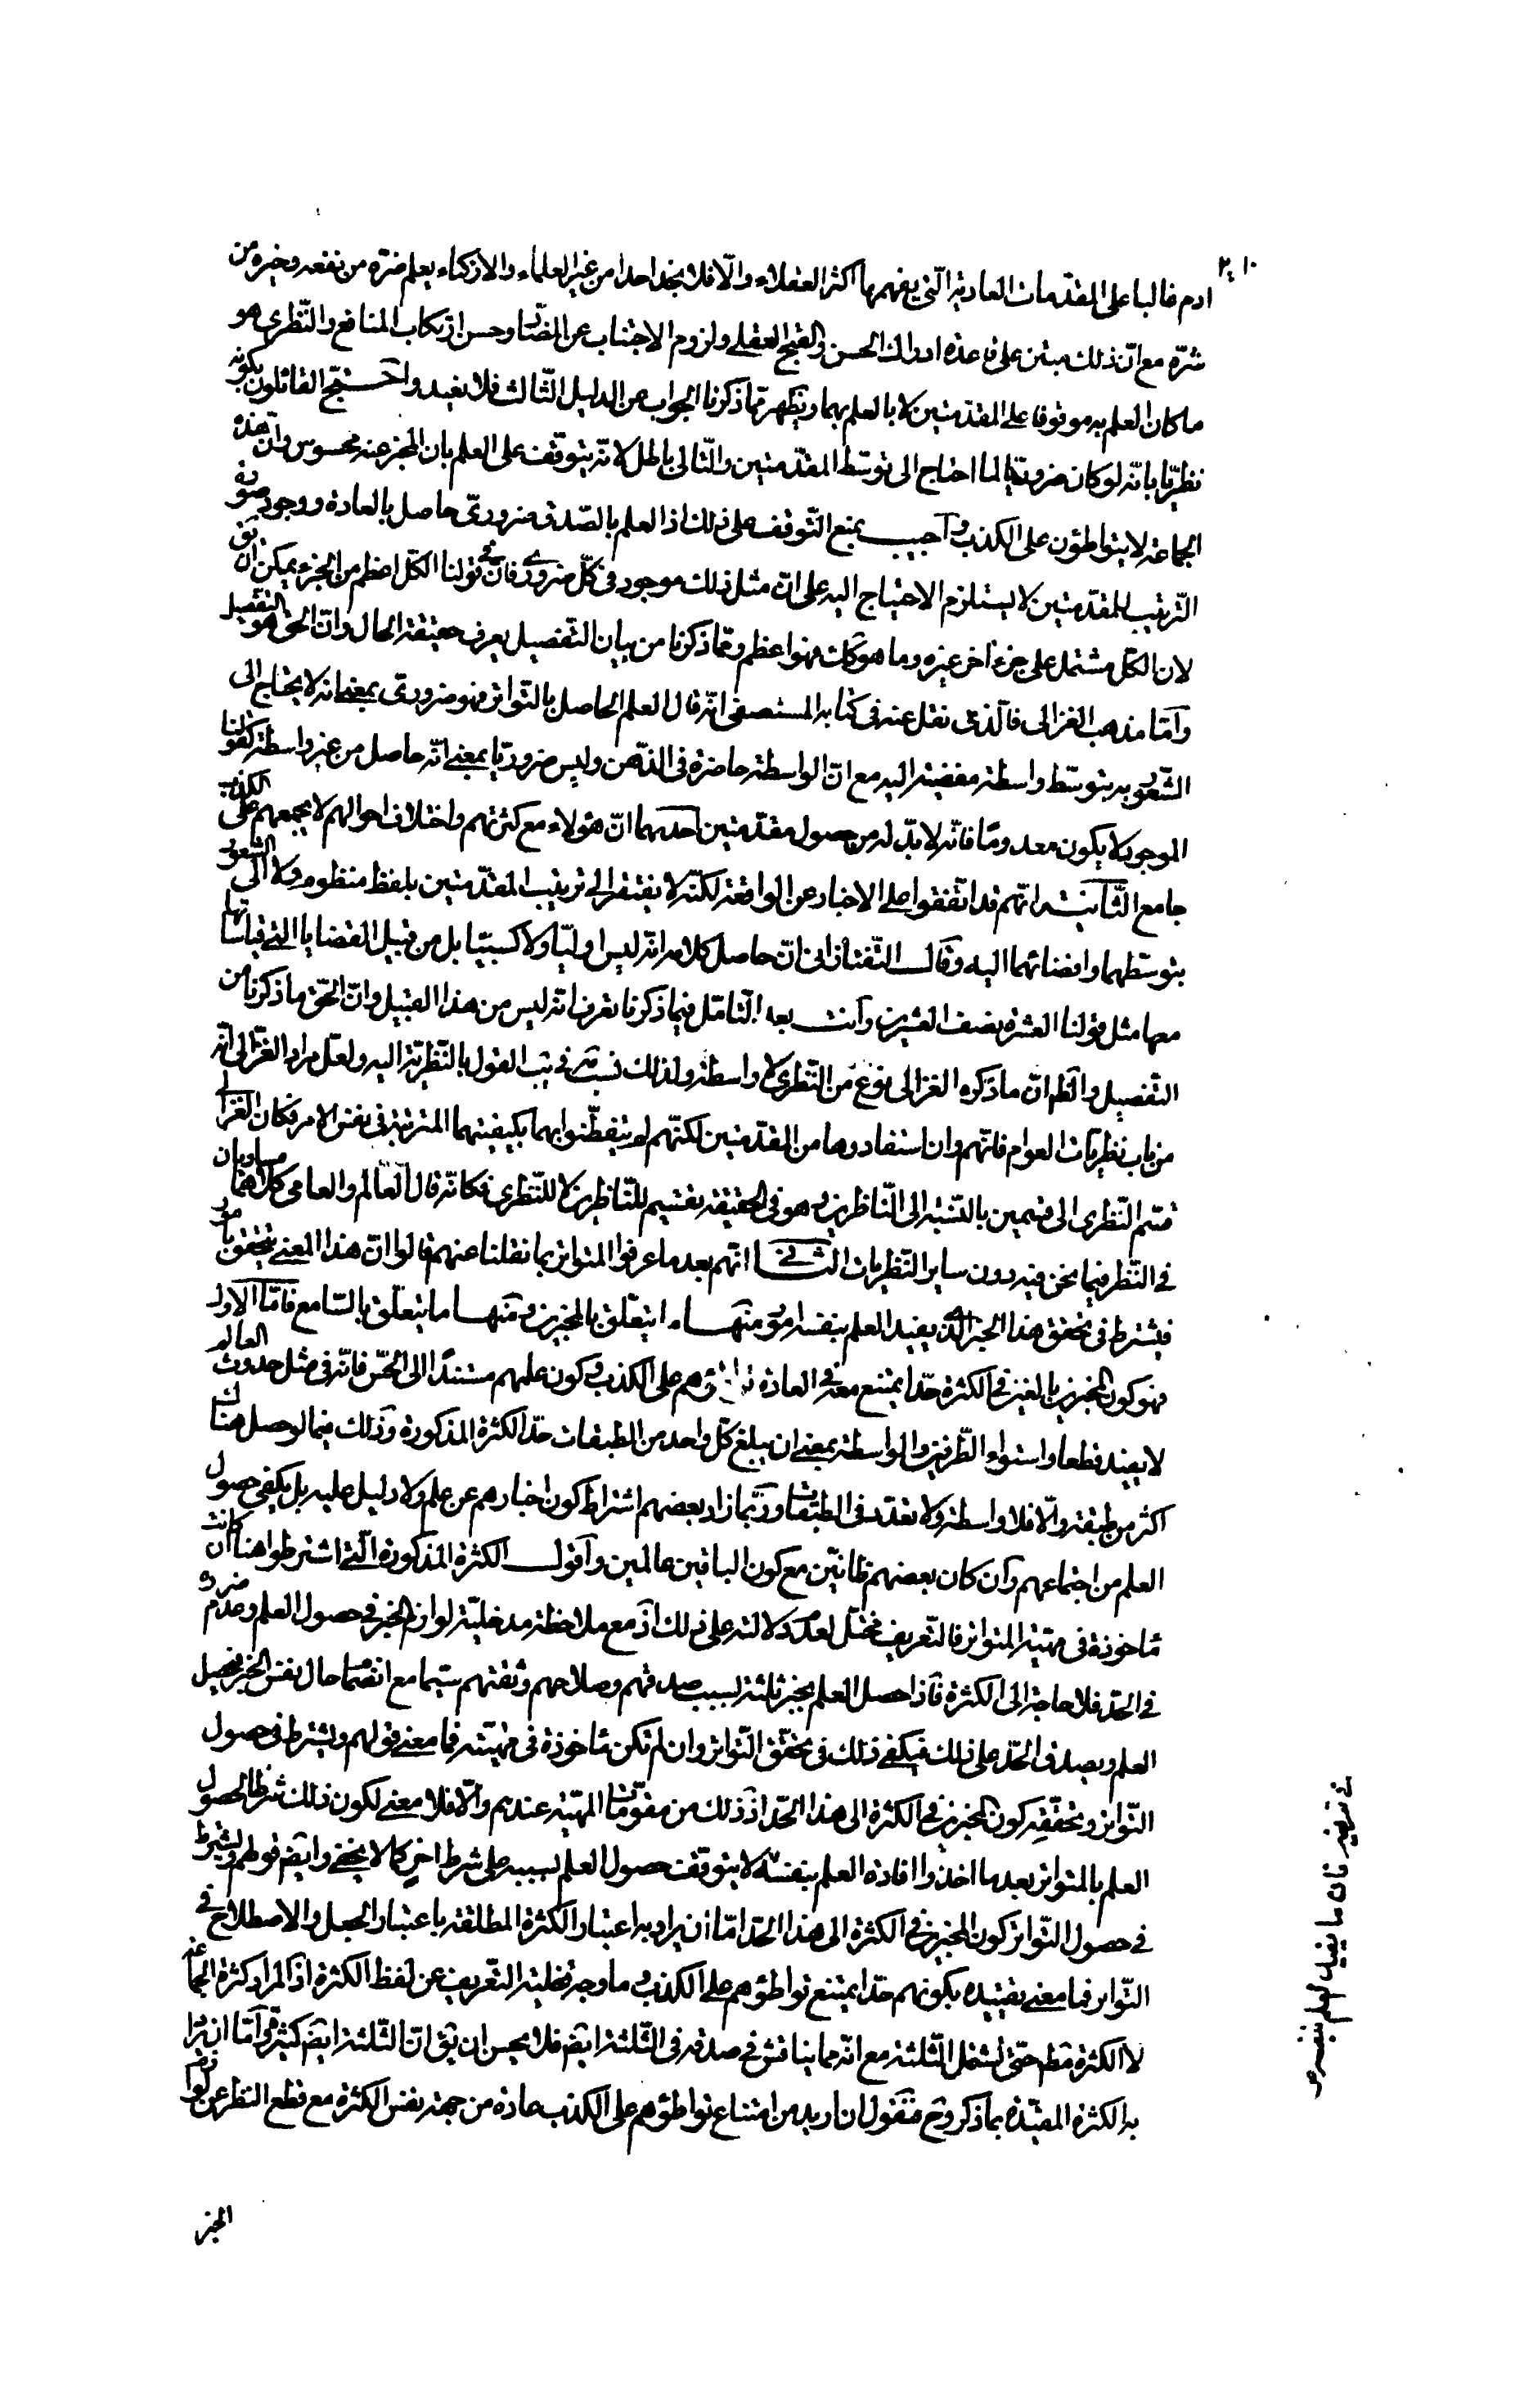 ادم غالبا على المقدمات العادية التى يفهمها اكثر العقلاء والّا فلا نجد احدا من غير العلماء والاذكياء يعلم ضرّه من نفعه وخيره من
شرّه مع انّ ذلك مبتن على قاعدة ادراك الحسن والقبح العقلى ولزوم الاجتناب عن المضارّ وحسن ارتكاب المنافع والنّظرى هو
ما كان العلم به موقوفا على المقدمتين لا بالعلم بهما ويظهر ممّا ذكرنا الجواب عن الدليل الثّالث فلا نعيد واحتجّ القائلون بكونه
نظريّا بانّه لو كان ضروريّا لما احتاج الى توسّط المقدّمتين والتّالى باطل لانّه يتوقّف على العلم بان المخبر عنه محسوس وان هذه
الجماعة لا يتواطؤن على الكذب واجيب بمنع التّوقف على ذلك اذ العلم بالصّدق ضرورىّ حاصل بالعادة ووجود صورة
التّرتيب للمقدّمتين لا يستلزم الاحتياج اليه على انّ مثل ذلك موجود فى كلّ ضرورى فانّ فى قولنا الكلّ اعظم من الجزء يمكن ان يق
لان الكلّ مشتمل على جزء اخر غيره وما هو كك فهو اعظم وممّا ذكرنا من بيان التّفصيل يعرف حقيقة الحال وانّ الحق هو التّفصيل
وامّا مذهب الغزالى فالّذى نقل عنه فى كتابه المستصفى انّه قال العلم الحاصل بالتّواتر فهو ضرورى بمعنى انه لا يحتاج الى
الشّعور به بتوسّط واسطة مفضية اليه مع انّ الواسطة حاضرة فى الذّهن وليس ضروريّا بمعنى انّه حاصل من غير واسطة كقولنا
الموجود لا يكون معدوما فانّه لا بدّ له من حصول مقدّمتين احديهما انّ هؤلاء مع كثرتهم واختلاف احوالهم لا يجمعهم على الكذب
جامع الثّانية انّهم قد اتّفقوا على الاخبار عن الواقعة لكنّه لا يفتقر الى ترتيب المقدّمتين بلفظ منظوم ولا الى الشعور
بتوسّطهما وافضائهما اليه وقال التّفتازانى انّ حاصل كلامه انّه ليس اوليّا ولا كسبيّا بل من قبيل القضايا الّتى قياساتها
معها مثل قولنا العشرة نصف العشرين وانت بعد التّامّل فيما ذكرنا تعرف انّه ليس من هذا القبيل وانّ الحقّ ما ذكرنا من
التّفصيل والظّ انّ ما ذكره الغزالى نوع من النّظرى لا واسطة ولذلك نسب القول بالنّظريّة اليه ولعلّ مراد الغزّالى انّه
من باب نظريّات العوام فانّهم وان استفادوها من المقدّمتين لكنّهم لم يتفطّنوا بهما بكيفيتهما المترتبة فى نفس الامر فكان الغزالى
قسّم النّظرى الى قسمين بالنّسبة الى النّاظرين وهو فى الحقيقة تقسيم للنّاظرين لا للنّظرى فكانّه قال العالم والعامى كلاهما مساويان
فى النّظر فيما نحن فيه دون ساير النّظريات الثانى انّهم بعد ما عرفوا المتواتر بما نقلنا عنهم قالوا انّ هذا المعنى يتحقق بامور
فيشترط فى تحقق هذا الخبر الّذى يفيد العلم بنفسه امور منها ما يتعلّق بالمخبرين ومنها ما يتعلّق بالسّامع فامّا الاول
فهو كون المخبرين بالغين فى الكثرة حدّا يمتنع معه فى العادة تواطؤهم على الكذب وكون علمهم مستندًا الى الحسّ فانّه فى مثل حدوث العالم
لا يفيد قطعا واستواء الطّرفين والواسطة بمعنى ان يبلغ كلّ واحد من الطبقات حدّ الكثرة المذكورة وذلك فيما لو حصل هناك
اكثر من طبقة والّا فلا واسطة ولا تعدّد فى الطبقات وربّما زاد بعضهم اشتراط كون اخبارهم عن علم ولا دليل عليه بل يكفى حصول
العلم من اجتماعهم وان كان بعضهم ظانّين مع كون الباقين عالمين واقول الكثرة المذكورة الّتى اشترطوا هنا ان كانت
ماخوذة فى مهيّة المتواتر فالتّعريف مختلّ لعدم دلالته على ذلك اذ مع ملاحظة مدخليّة لوازم الخبر فى حصول العلم وعدم ضره
فى الحدّ فلا حاجة الى الكثرة فاذا حصل العلم بخبر ثلثة بسبب صدقهم وصلاحهم وثقتهم سيّما مع انضمام حال نفس الخبر فيحصل
العلم ويصدق الحدّ على ذلك فيكفى ذلك فى تحقّق التّواتر وان لم تكن ماخوذة فى مهيّته فما معنى قولهم ويشترط فى حصول
التّواتر وتحقّقه كون المخبرين فى الكثرة الى هذا الحدّ اذ ذلك من مقوّمات المهيّة عندهم والّا فلا معنى لكون ذلك شرطا لحصول
العلم بالمتواتر بعد ما اخذوا افادة العلم بنفسه لا يتوقف حصول العلم بسببه على شرط اخر كما لا يخفى وايضا قولهم ويشترط
فى حصول التّواتر كون المخبرين فى الكثرة الى هذا الحدّ امّا ان يراد به اعتبار الكثرة المطلقة باعتبار الجعل والاصطلاح فى
التّواتر فما معنى تقييده بكونهم حدّا يمتنع تواطؤهم على الكذب وما وجه تخلية التّعريف عن لفظ الكثرة اذ المراد كثرة الجماعة
لا الكثرة مط حتّى تشمل الثّلثة مع انّه مما يناقش فى صدقه فى الثّلثة ايض فلا يحسن ان يق انّ الثّلثة ايض كثيرة وامّا ان يراد
به الكثرة المقيّدة بما ذكر وح فنقول ان اريد من امتناع تواطؤهم على الكذب عادة من جهة نفس الكثرة مع قطع النظر عن لوازم
الخبر